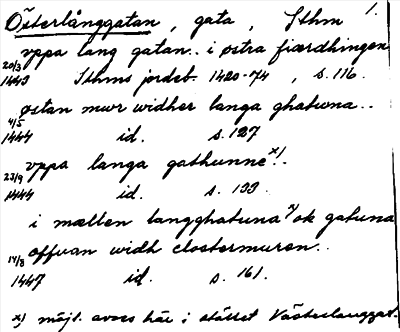 Österlånggatan, gata, Sthm 1.
vppa lang gatan.. i østra fiærdhingen
20/3 1443 Sthms jordeb. 1420-74, s. 116.
østan mur widher langa ghatwna..
4/5 1444 id. s. 127
vppa langa gathunne x)!.
23/9 1444 id. s. 133.
i mællen langghatuna x) ok gatuna
offuan widh clostermuren..
14/8 1447 id. s. 161.
x) möjl. avses här i stället Västerlånggat.